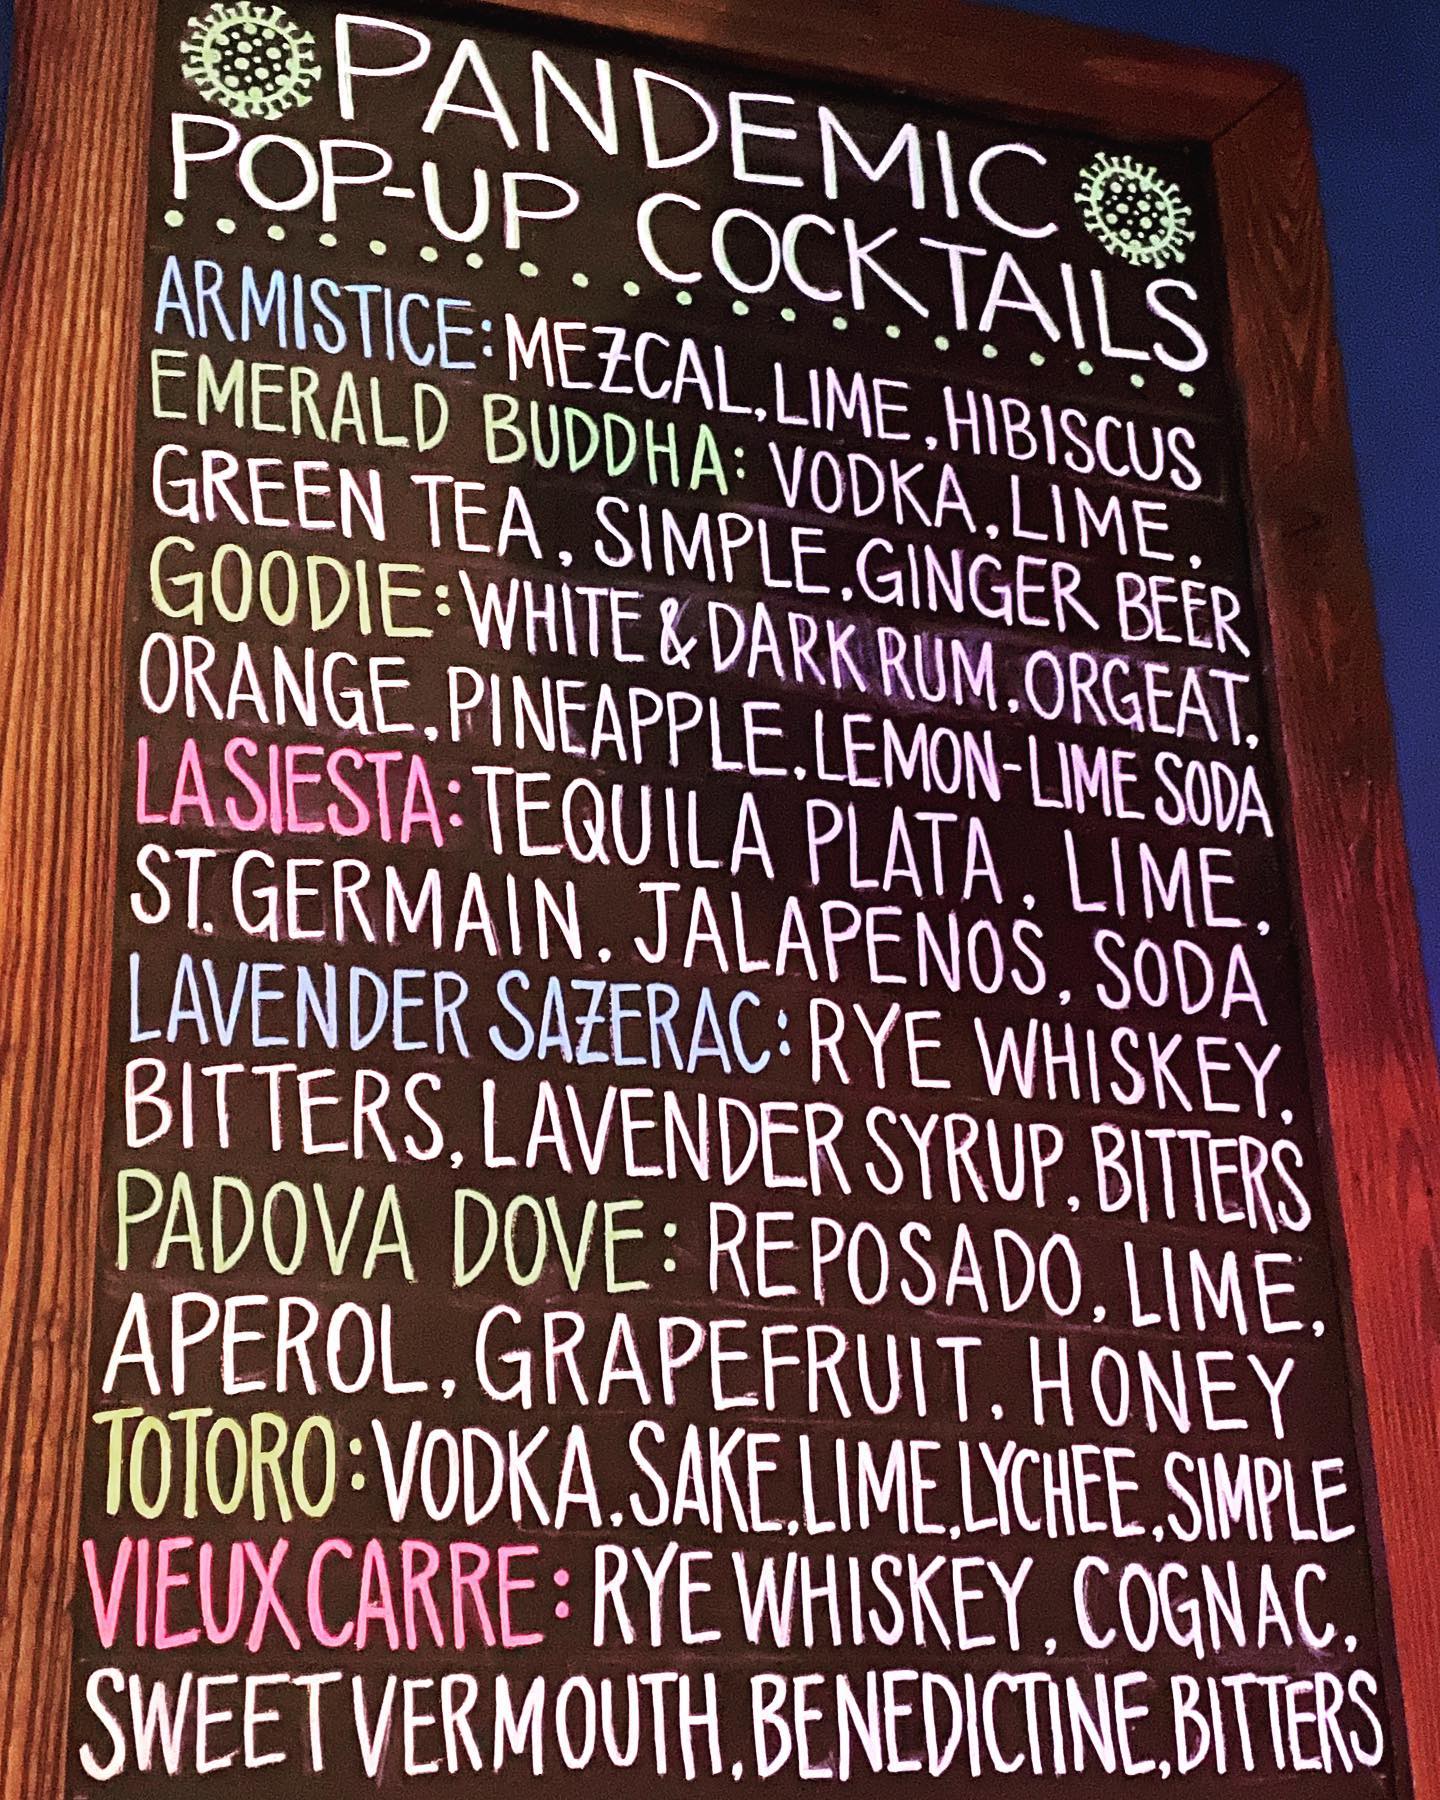 PANDEMIC
POP-UP COCKTAILS
ARMISTICE: MEZCAL, LIME, HIBISCUS
EMERALD BUDDHA: VODKA, LIME,
GREEN TEA, SIMPLE, GINGER BEER
GOODIE: WHITE & DARK RUM, ORGEAT,
ORANGE, PINEAPPLE, LEMON-LIME SODA
LA SIESTA: TEQUILA PLATA, LIME,
ST. GERMAIN, JALAPENOS, SODA
LAVENDER SAZERAC: RYE WHISKEY,
BITTERS, LAVENDER SYRUP, BITTERS
PADOVA DOVE: REPOSADO, LIME,
APEROL, GRAPEFRUIT, HONEY
TOTORO: VODKA, SAKE, LIME, LYCHEE, SIMPLE
VIEUX CARRE: RYE WHISKEY, COGNAC,
SWEET VERMOUTH, BENEDICTINE, BITTERS